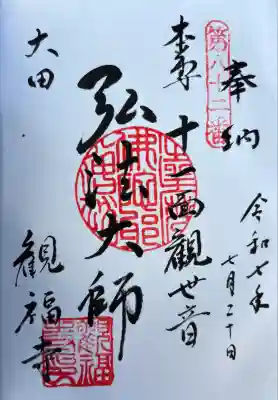 奉納
第八十二番
令和七年
七月二十日
本尊 十一面觀世音
弘法大師
大田
観福寺